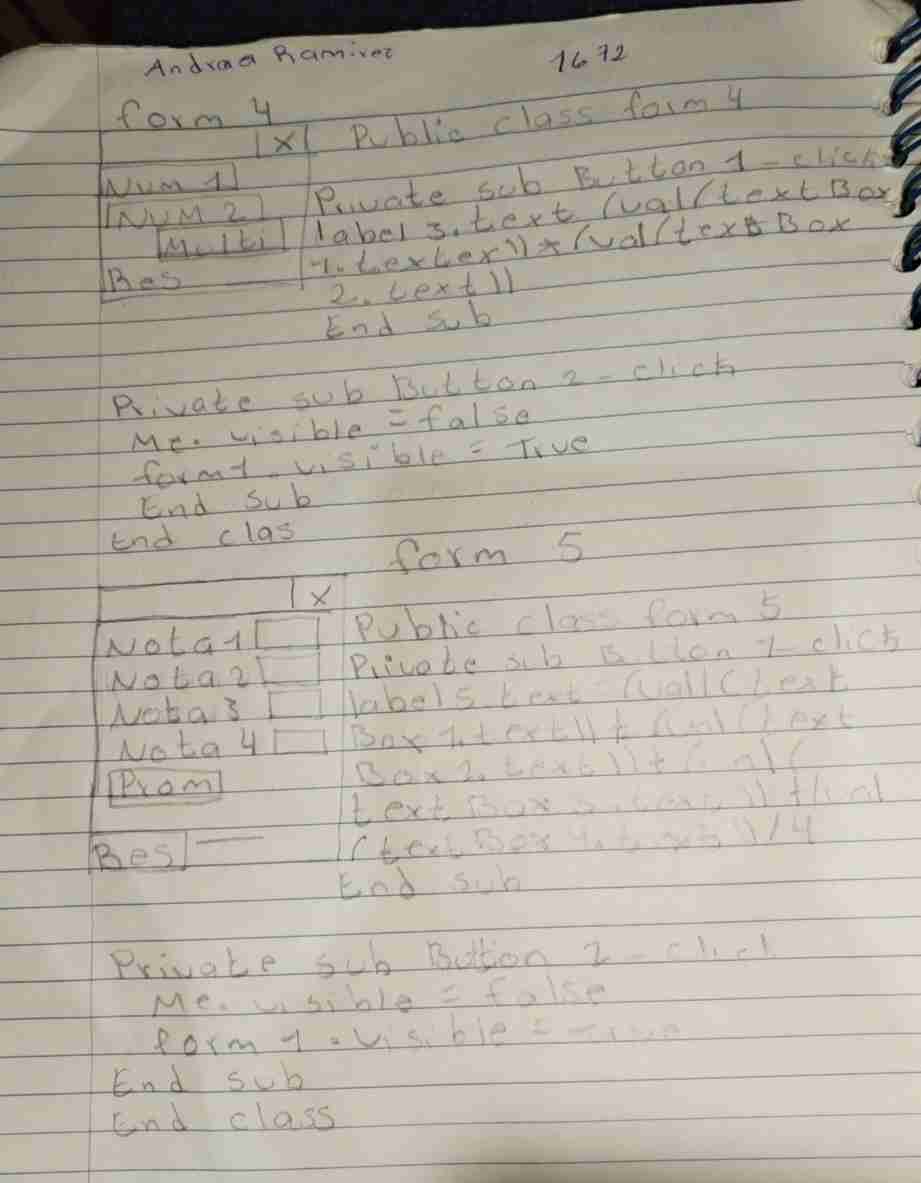 Andrea Ramirez 1672
form 4
X
Public class form 4
Num 1
Num 2
Multi
Res
Private sub Button 1 - click
label 3. text (val(text Box
1. texter)) * (val(text Box
2. text))
End Sub
Private sub Button 2 - click
Me. visible = false
form 1. visible = True
End sub
End clas
form 5
X
Nota 1
Nota 2
Nota 3
Nota 4
Prom
Res
Public class form 5
Private sub Button 1 - click
label 5. text (val((text
Box 1. text)) + (val(text
Box 2. text)) + (val(
text Box 3. text)) + (val
(text Box 4. text))/4
End sub
Private sub Button 2 - click
Me. visible = false
form 1. visible = True
End sub
End class